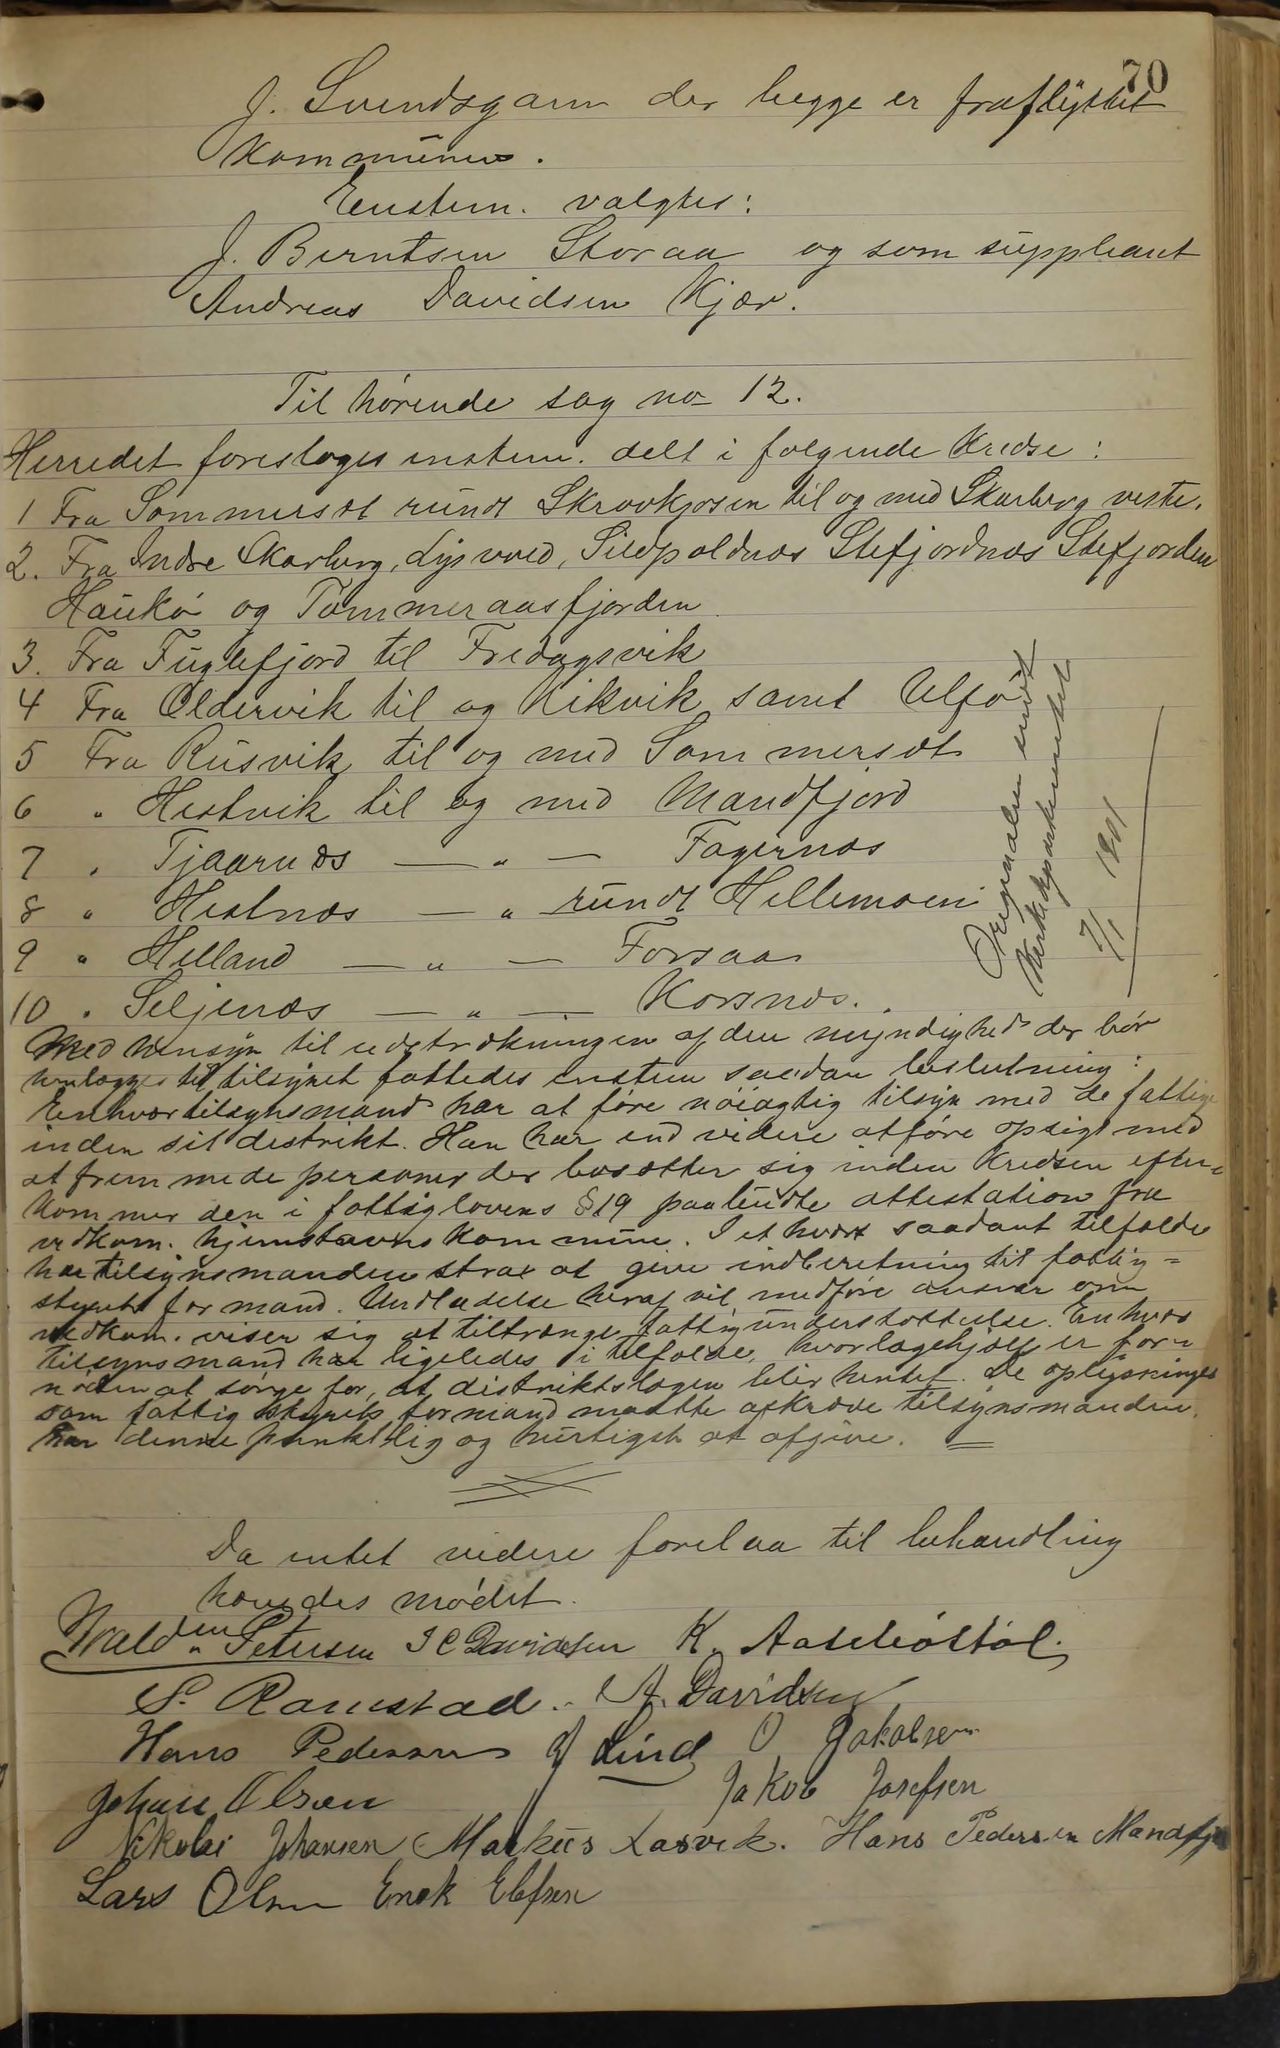 70
J. Svendsgam der begge er fraflyttet
Kommunen.
Enstem. valgtes:
J. Berntsen Storaa og som suppleant
Andreas Davidsen Kjær.
Til hörende sag no 12.
Herredet foresloges enstem. delt i følgende Kredse:
1 Fra Sommerset rundt Skrovkjosen til og med Skarberg vestre.
2. Fra Indre Skarberg, Lysvold, Sildpoldnæs Stefjordnæs Stefjorden
Haukö og Tømmeraasfjorden
3. Fra Fuglefjord til Fredagsvik
4 Fra Oldervik til og Kikvik samt Ulfö
5 Fra Rusvik til og med Sommerset
6 " Hestvik til og med Mandfjord
7 " Tjaarnæs — " — Fagernæs
8 " Hestnæs — " rundt Hellemoen
9 " Helland — " — Forsaa
10 " Seljenæs — " — Korsnæs.
Originalen sendt
Kirkedepartementet
7/1 1901
Med hensyn til udstrækningen af den myndighed der bör
henlægges til tilsynet fattedes enstem saadan beslutning:
Enhver tilsynsmand har at före nöiagtig tilsyn med de fattige
inden sit distrikt. Han har end videre at före opsigt med
at fremmede personer der bosætter sig inden Kredsen efter-
kommer den i fattiglovens §19 paabudte attestation fra
vedkom. hjemstavnskommune. I et hvert saadant tilfælde
har tilsynsmanden strax at give indberetning til fattig-
styrets formand. Undladelse heraf vil medföre ansvar om
vedkom. viser sig at tiltrænge fattigunderstøttelse. Enhver
tilsynsmand har ligeledes i tilfælde, hvor lægehjælp er for-
nöden at sörge for, at distriktslægen blir hentet. De oplysninger
som fattigstyrets formand maatte afkræve tilsynsmanden,
har denne punktlig og hurtigst at afgive.
Da intet videre forelaa til behandling
hævedes mödet.
Wald. Petersen J C Davidsen K.
S. Ramstad. A. Davidsen
Hans Pedersen Lind O Jakobsen
Johan Olsen Jakob Josefsen
Nikolai Johansen Markus Laxvik. Hans Pedersen Mandfj
Lars Olsen Enok Elefsen